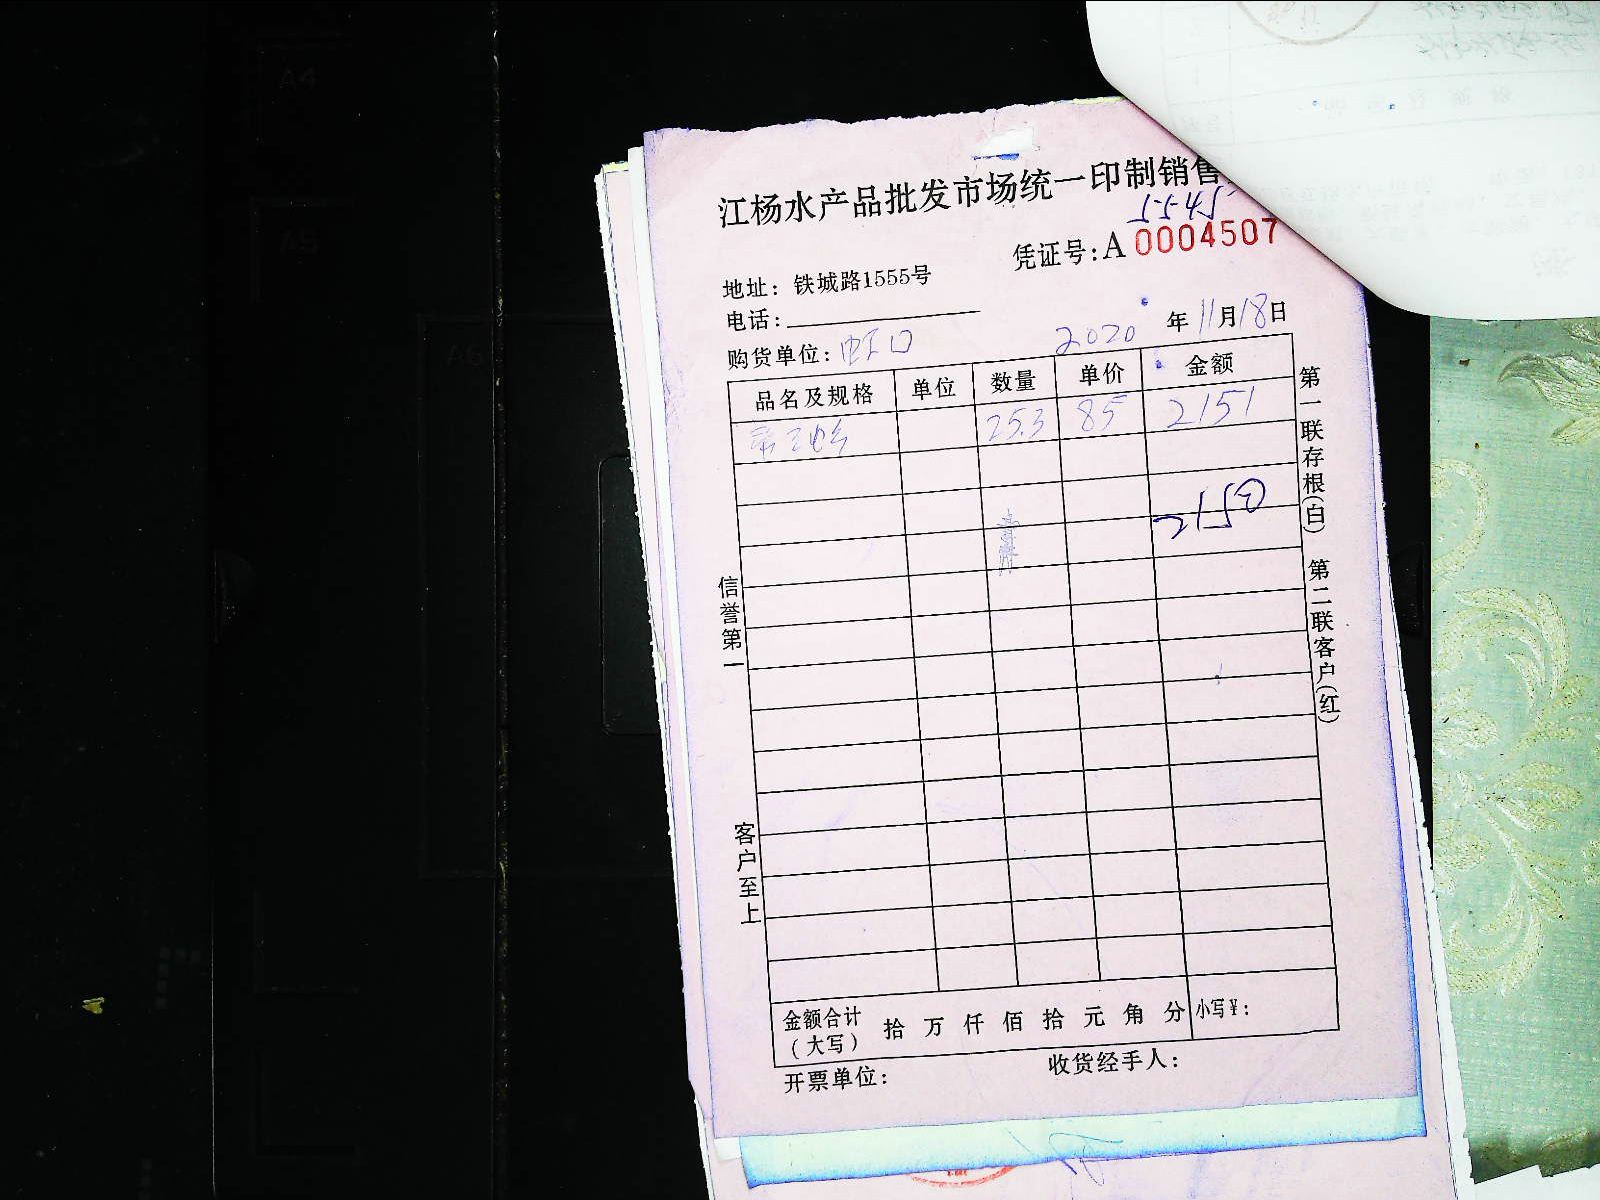 江杨水产品批发市场统一印制销售
5545
凭证号:A 0004507
地址: 铁城路1555号
电话:
购货单位: 虹口
2020 年 11 月 18 日
品名及规格 单位 数量 单价 金额
25.3 85 2151
2150
第一联存根(白) 第二联客户(红)
信誉第一
客户至上
金额合计(大写) 拾 万 仟 佰 拾 元 角 分 小写¥:
开票单位: 收货经手人:
A4
A5
A6